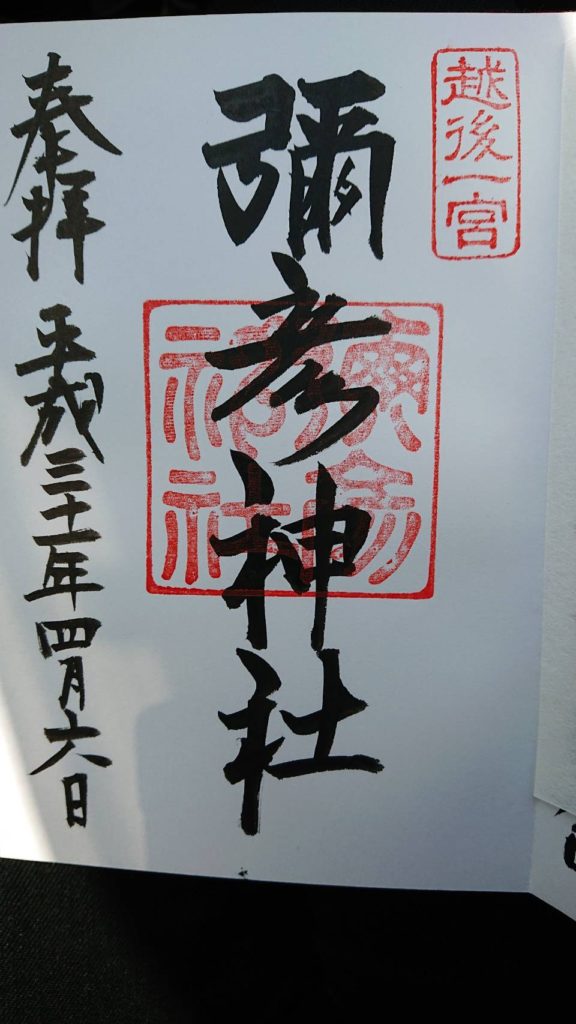 越後一宮
彌彦神社
奉拝 平成三十一年四月六日